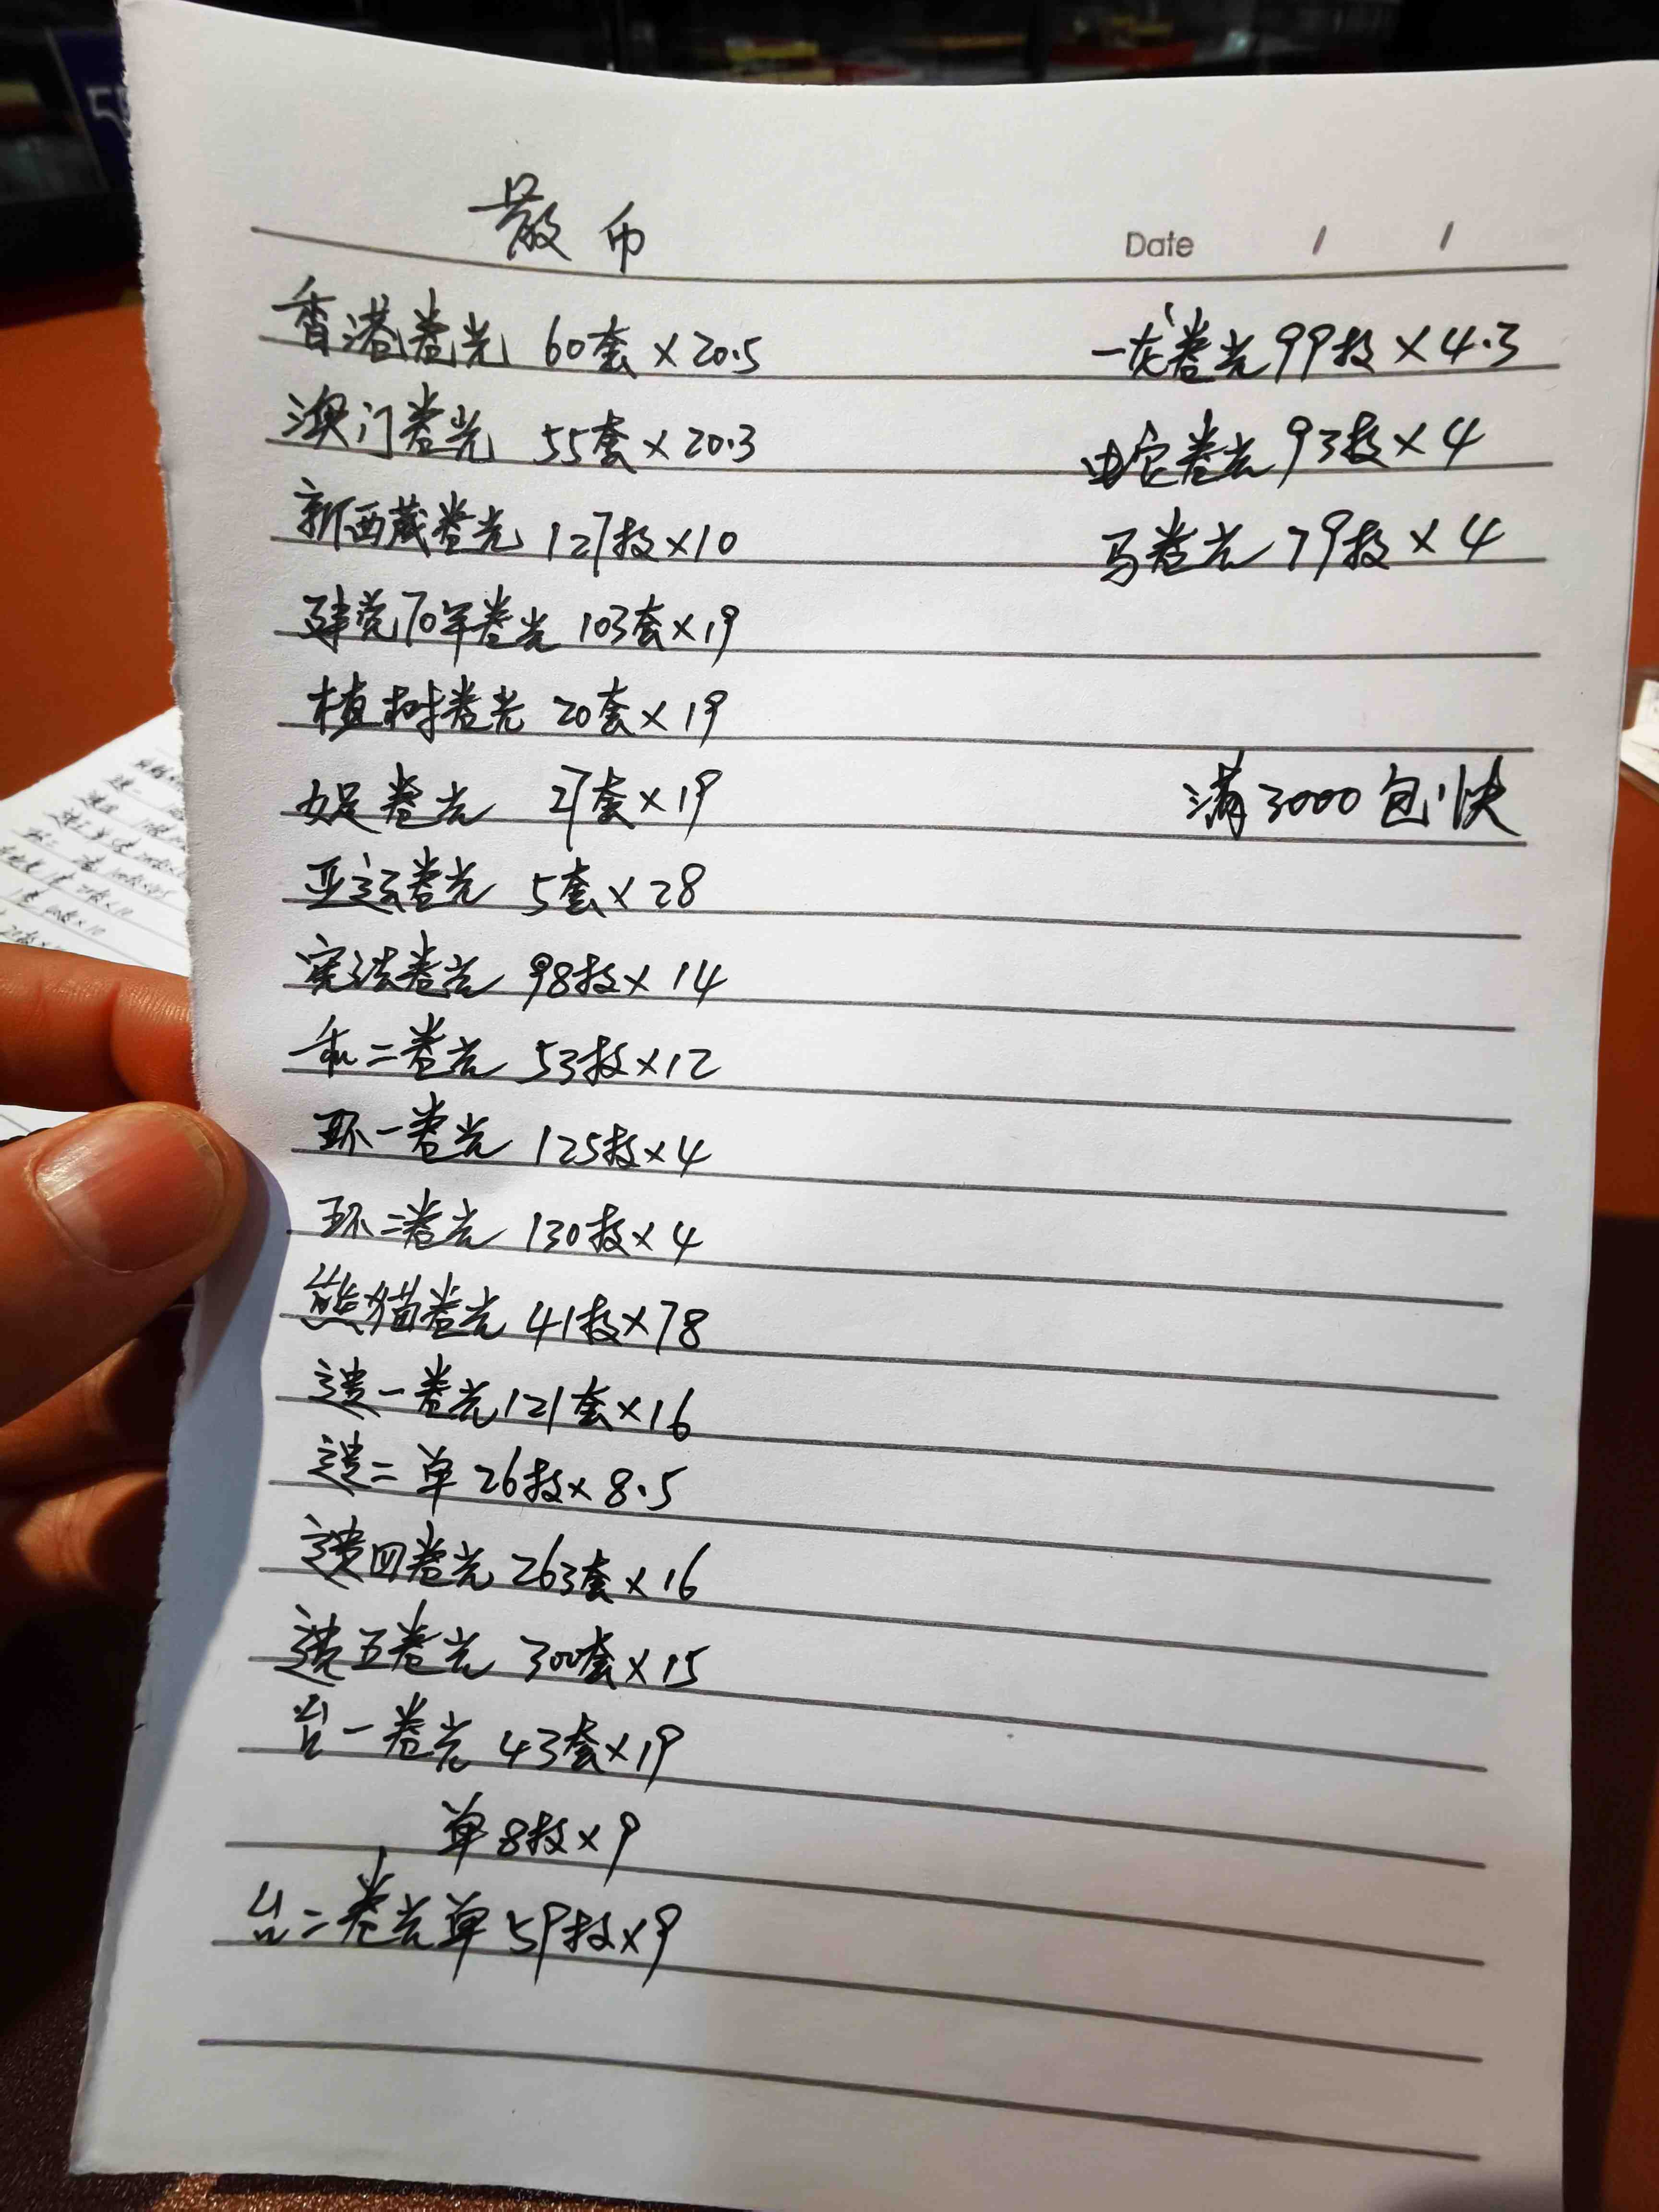 散币
Date / /
香港卷光 60套×20.5
澳门卷光 55套×20.3
新西藏卷光 127枚×10
建党70年卷光 103套×19
植树卷光 20套×19
女足卷光 27套×19
亚运卷光 5套×28
宪法卷光 98枚×14
和二卷光 53枚×12
环一卷光 125枚×4
环二卷光 130枚×4
熊猫卷光 41枚×78
遗一卷光 121套×16
遗二单 26枚×8.5
遗四卷光 263套×16
遗五卷光 300套×15
台一卷光 43套×19
单 8枚×9
台二卷光单 59枚×9
一龙卷光 99枚×4.3
蛇卷光 93枚×4
马卷光 79枚×4
满3000包快